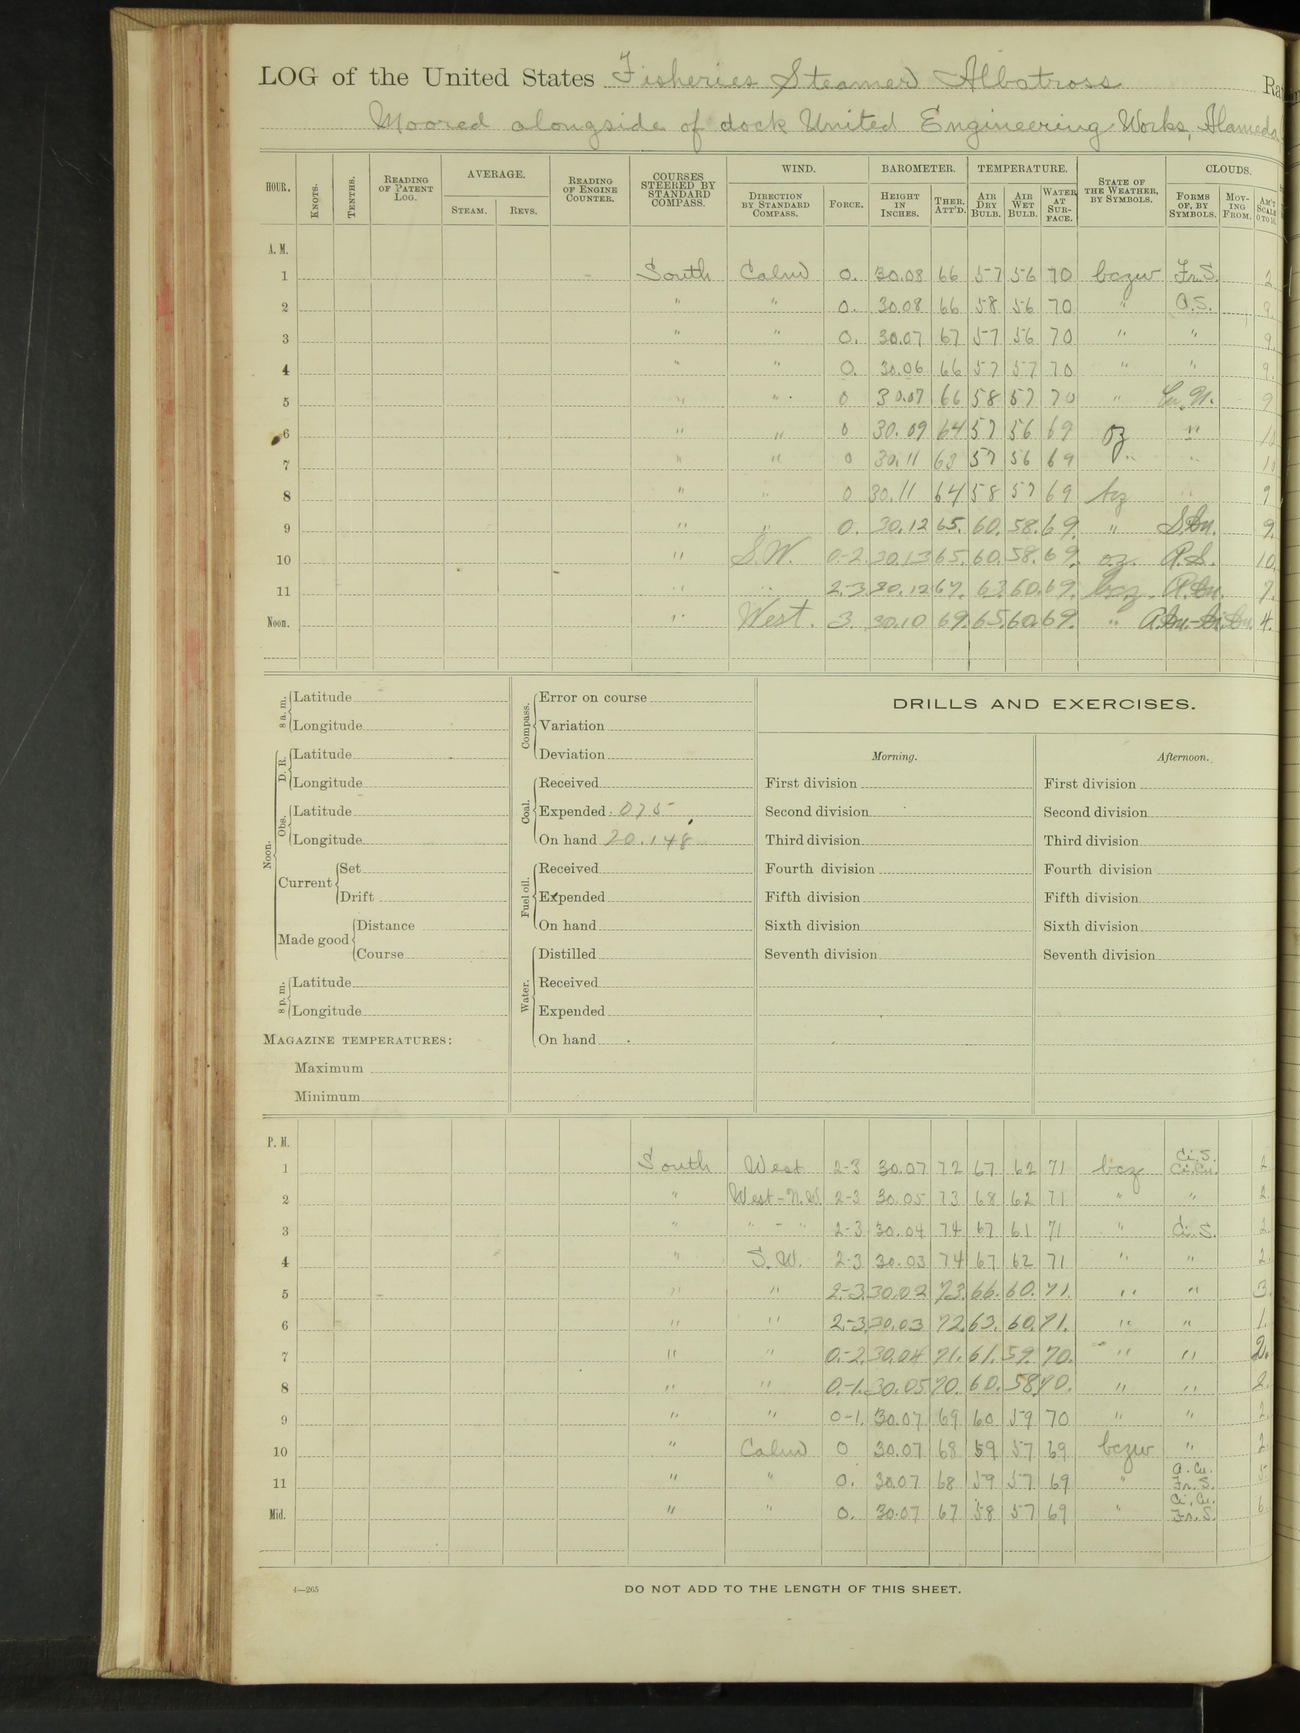 LOG of the United States Fisheries Steamer Albatross
Moored alongside of dock United Engineering Works, Alameda
HOUR. KNOTS. TENTHS. READING OF PATENT LOG. AVERAGE. STEAM. REVS. READING OF ENGINE COUNTER. COURSES STEERED BY STANDARD COMPASS. WIND. DIRECTION BY STANDARD COMPASS. FORCE. BAROMETER. HEIGHT IN INCHES. THER. ATT'D. TEMPERATURE. AIR DRY BULB. AIR WET BULB. WATER AT SURFACE. STATE OF THE WEATHER, BY SYMBOLS. CLOUDS. FORMS OF, BY SYMBOLS. MOVING FROM. AM'T SCALE 0 TO 10.
A. M.
1 South Calm 0. 30.08 66 57 56 70 bczw Fr.S. 2
2 " " 0. 30.08 66 58 56 70 " A.S. 9.
3 " " 0. 30.07 67 57 56 70 " " 9.
4 " " 0. 30.06 66 57 57 70 " " 9.
5 " " 0 30.07 66 58 57 70 " Cu.N. 9
6 " " 0 30.09 64 57 56 69 oz " 10
7 " " 0 30.11 63 57 56 69 " " 10
8 " " 0 30.11 64 58 57 69 bcz " 9
9 " " 0. 30.12 65. 60. 58. 69. " S.Cu. 9.
10 " S.W. 0-2. 30.13 65. 60. 58. 69. oz. A.S. 10.
11 " " 2-3. 30.12 67. 63 60. 69. bcz. A.Cu. 7.
Noon. " West. 3. 30.10 69. 65. 60. 69. " A.Cu.-Ci.Cu. 4.
8 a. m. Latitude
Longitude
Noon. D. R. Latitude
Longitude
Obs. Latitude
Longitude
Current Set
Drift
Made good Distance
Course
8 p. m. Latitude
Longitude
MAGAZINE TEMPERATURES:
Maximum
Minimum
Compass. Error on course
Variation
Deviation
Coal. Received
Expended 075
On hand 20.148
Fuel oil. Received
Expended
On hand
Water. Distilled
Received
Expended
On hand
DRILLS AND EXERCISES.
Morning. Afternoon.
First division First division
Second division Second division
Third division Third division
Fourth division Fourth division
Fifth division Fifth division
Sixth division Sixth division
Seventh division Seventh division
P. M.
1 South West 2-3 30.07 72 67 62 71 bcz Ci.S. Ci.Cu. 2
2 " West-N.W. 2-3 30.05 73 68 62 71 " " 2.
3 " " - " 2-3 30.04 74 67 61 71 " Ci.S. 2
4 " S.W. 2-3 30.03 74 67 62 71 " " 2.
5 " " 2-3. 30.02 73. 66. 60. 71. " " 3.
6 " " 2-3. 30.03 72. 63. 60. 71. " " 1.
7 " " 0-2. 30.04 71. 61. 59. 70. " " 2.
8 " " 0-1. 30.05 70. 60. 58. 70. " " 2.
9 " " 0-1. 30.07 69 60 59 70 " " 2.
10 " Calm 0 30.07 68 59 57 69 bczw " 2
11 " " 0. 30.07 68 59 57 69 " A.Cu. Fr.S. 5
Mid. " " 0. 30.07 67 58 57 69 " Ci.Cu. Fr.S. 6
4—265
DO NOT ADD TO THE LENGTH OF THIS SHEET.